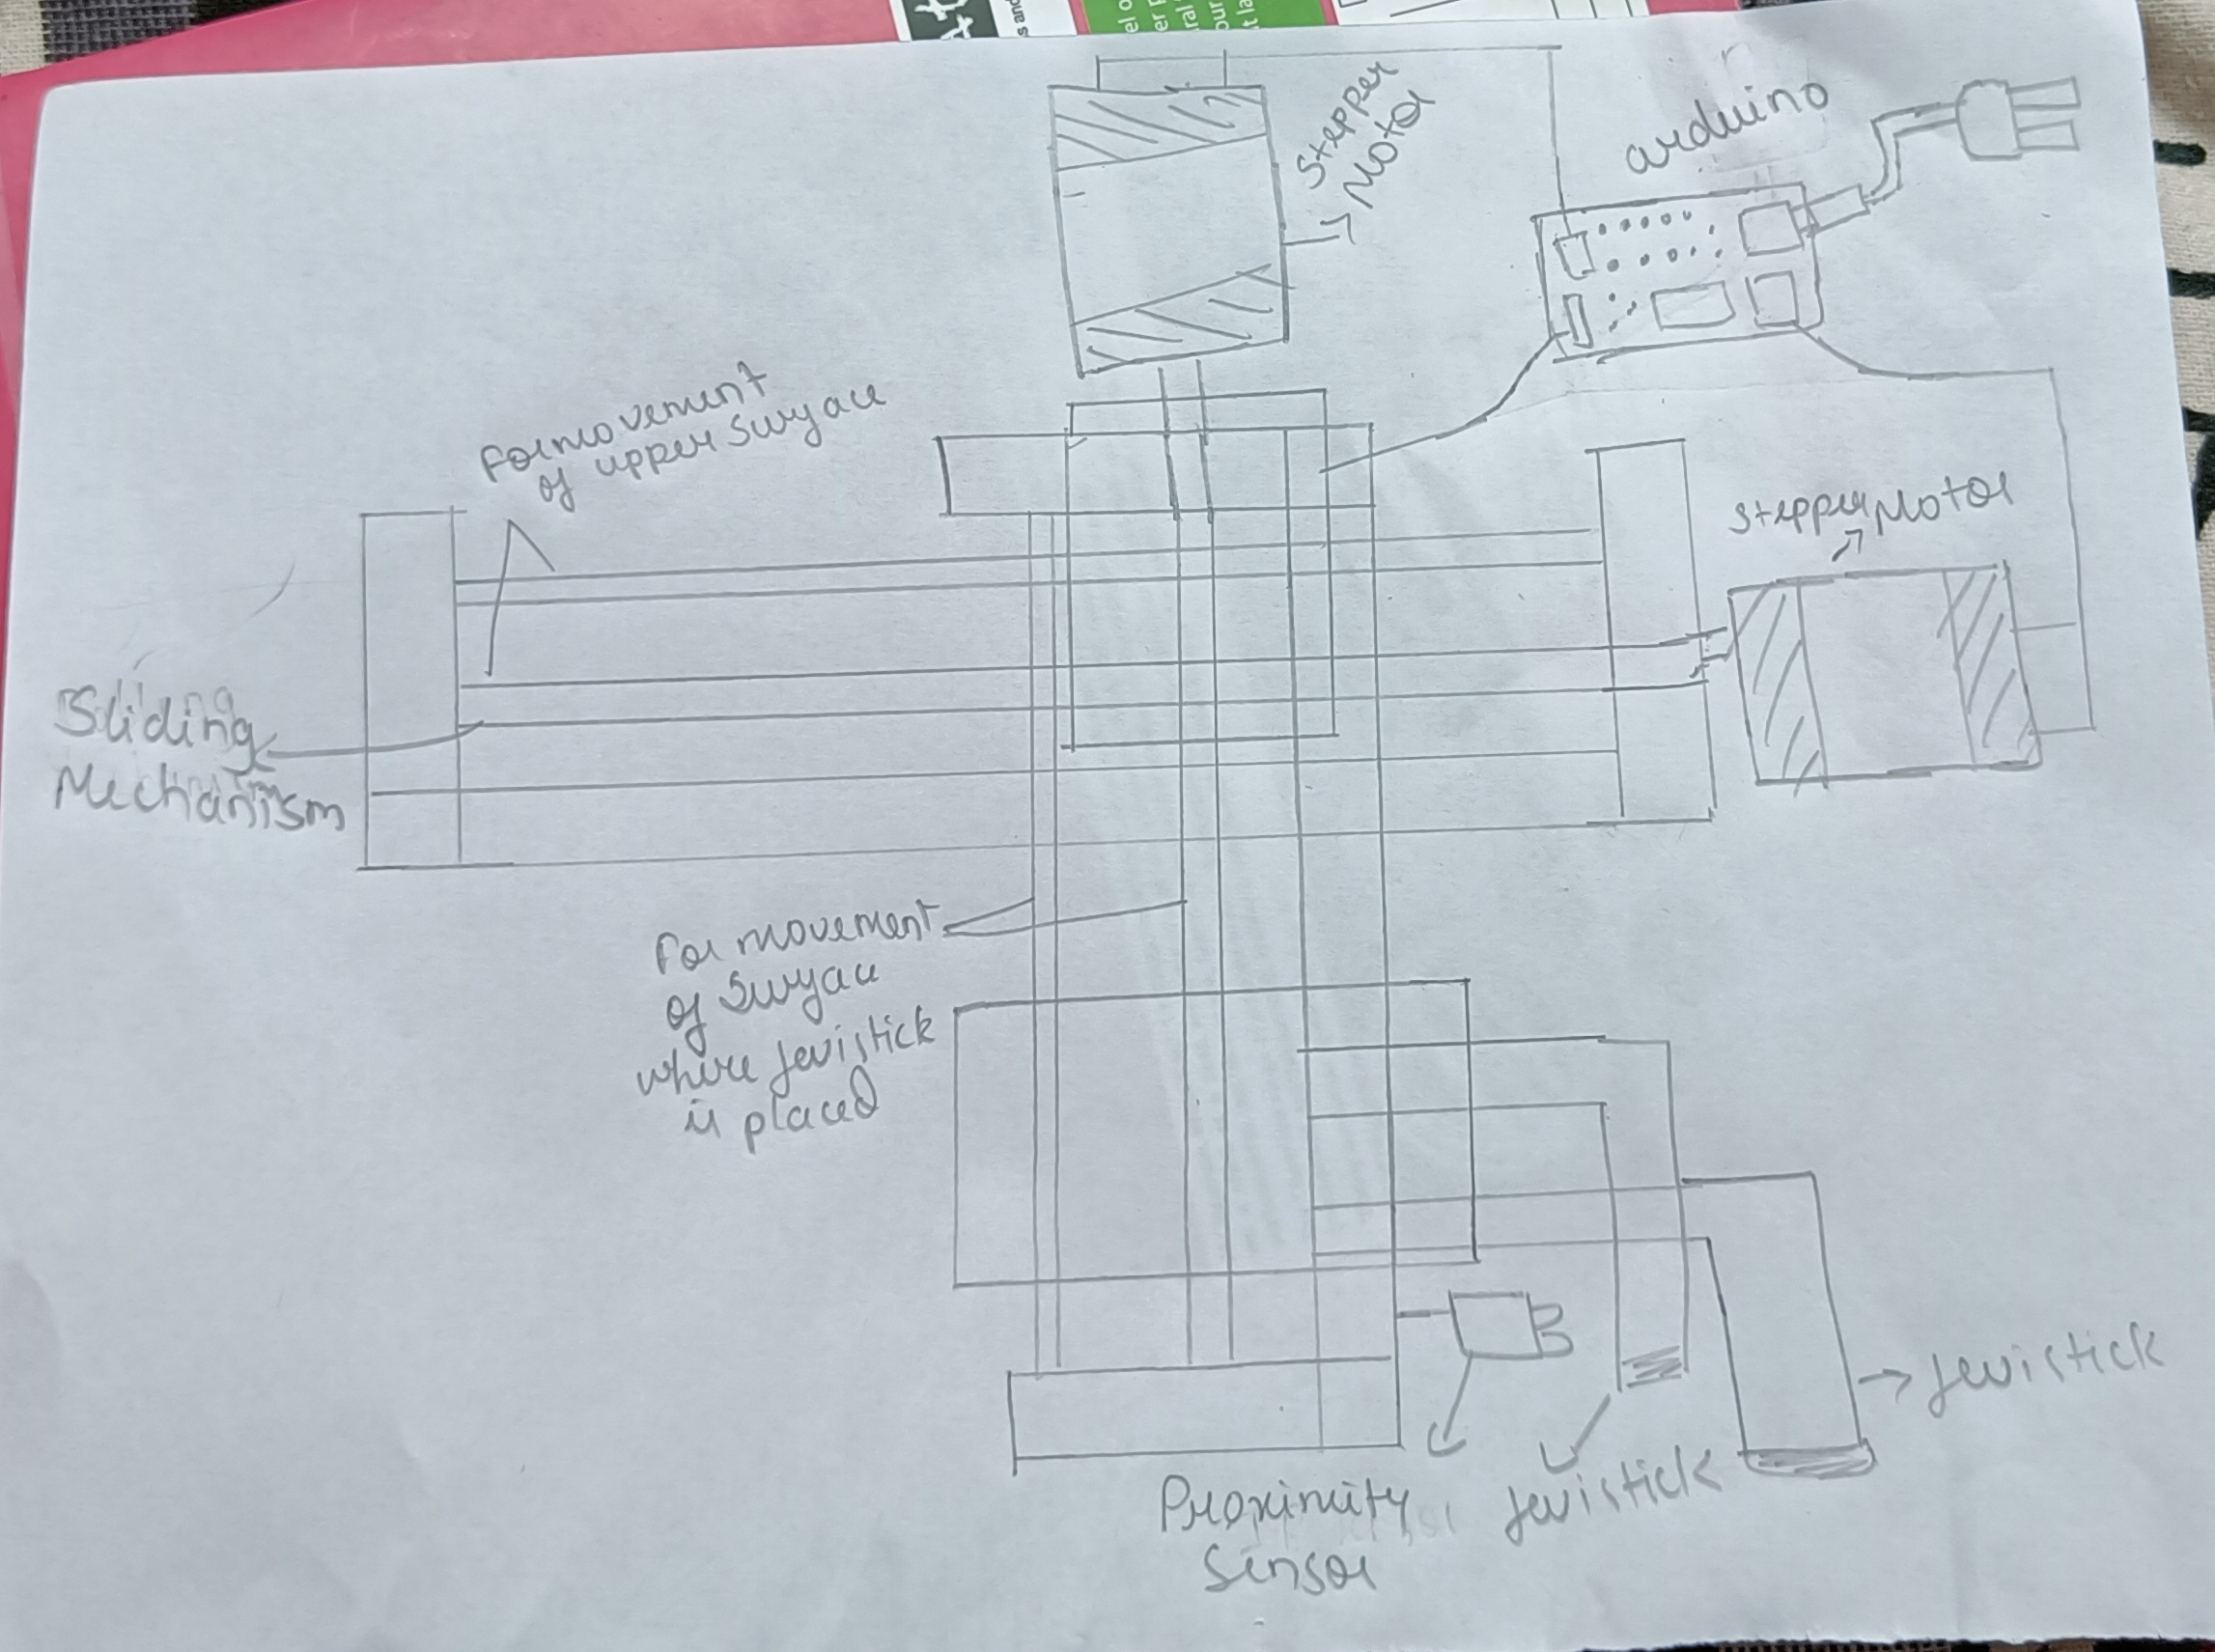 Stepper
Motor
arduino
For movement
of upper surface
Stepper Motor
Sliding
Mechanism
For movement
of surface
where Jevistick
is placed
Jevistick
Proximity
Sensor
Jevistick